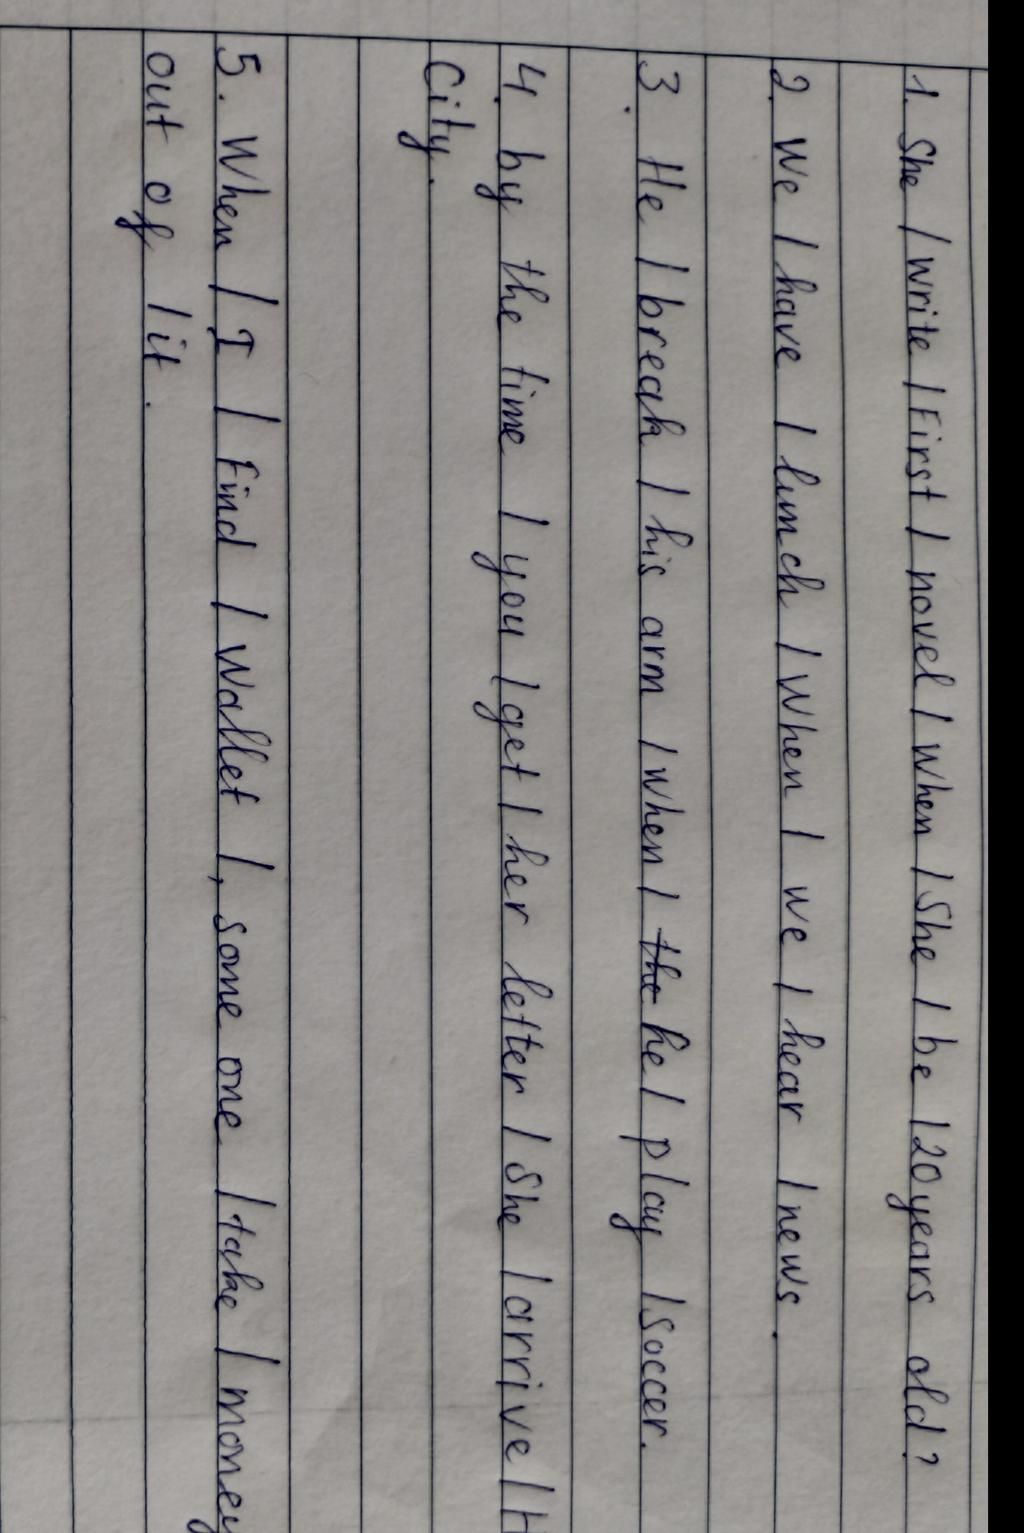 1. She / write / First / novel / When / She / be / 20 years old?
2. We / have / lunch / When / we / hear / news.
3. He / break / his arm / when / the he / play / soccer.
4. by the time / you / get / her letter / She / arrive /
City.
5. When / I / Find / Wallet /, some one / take / money
out of / it.